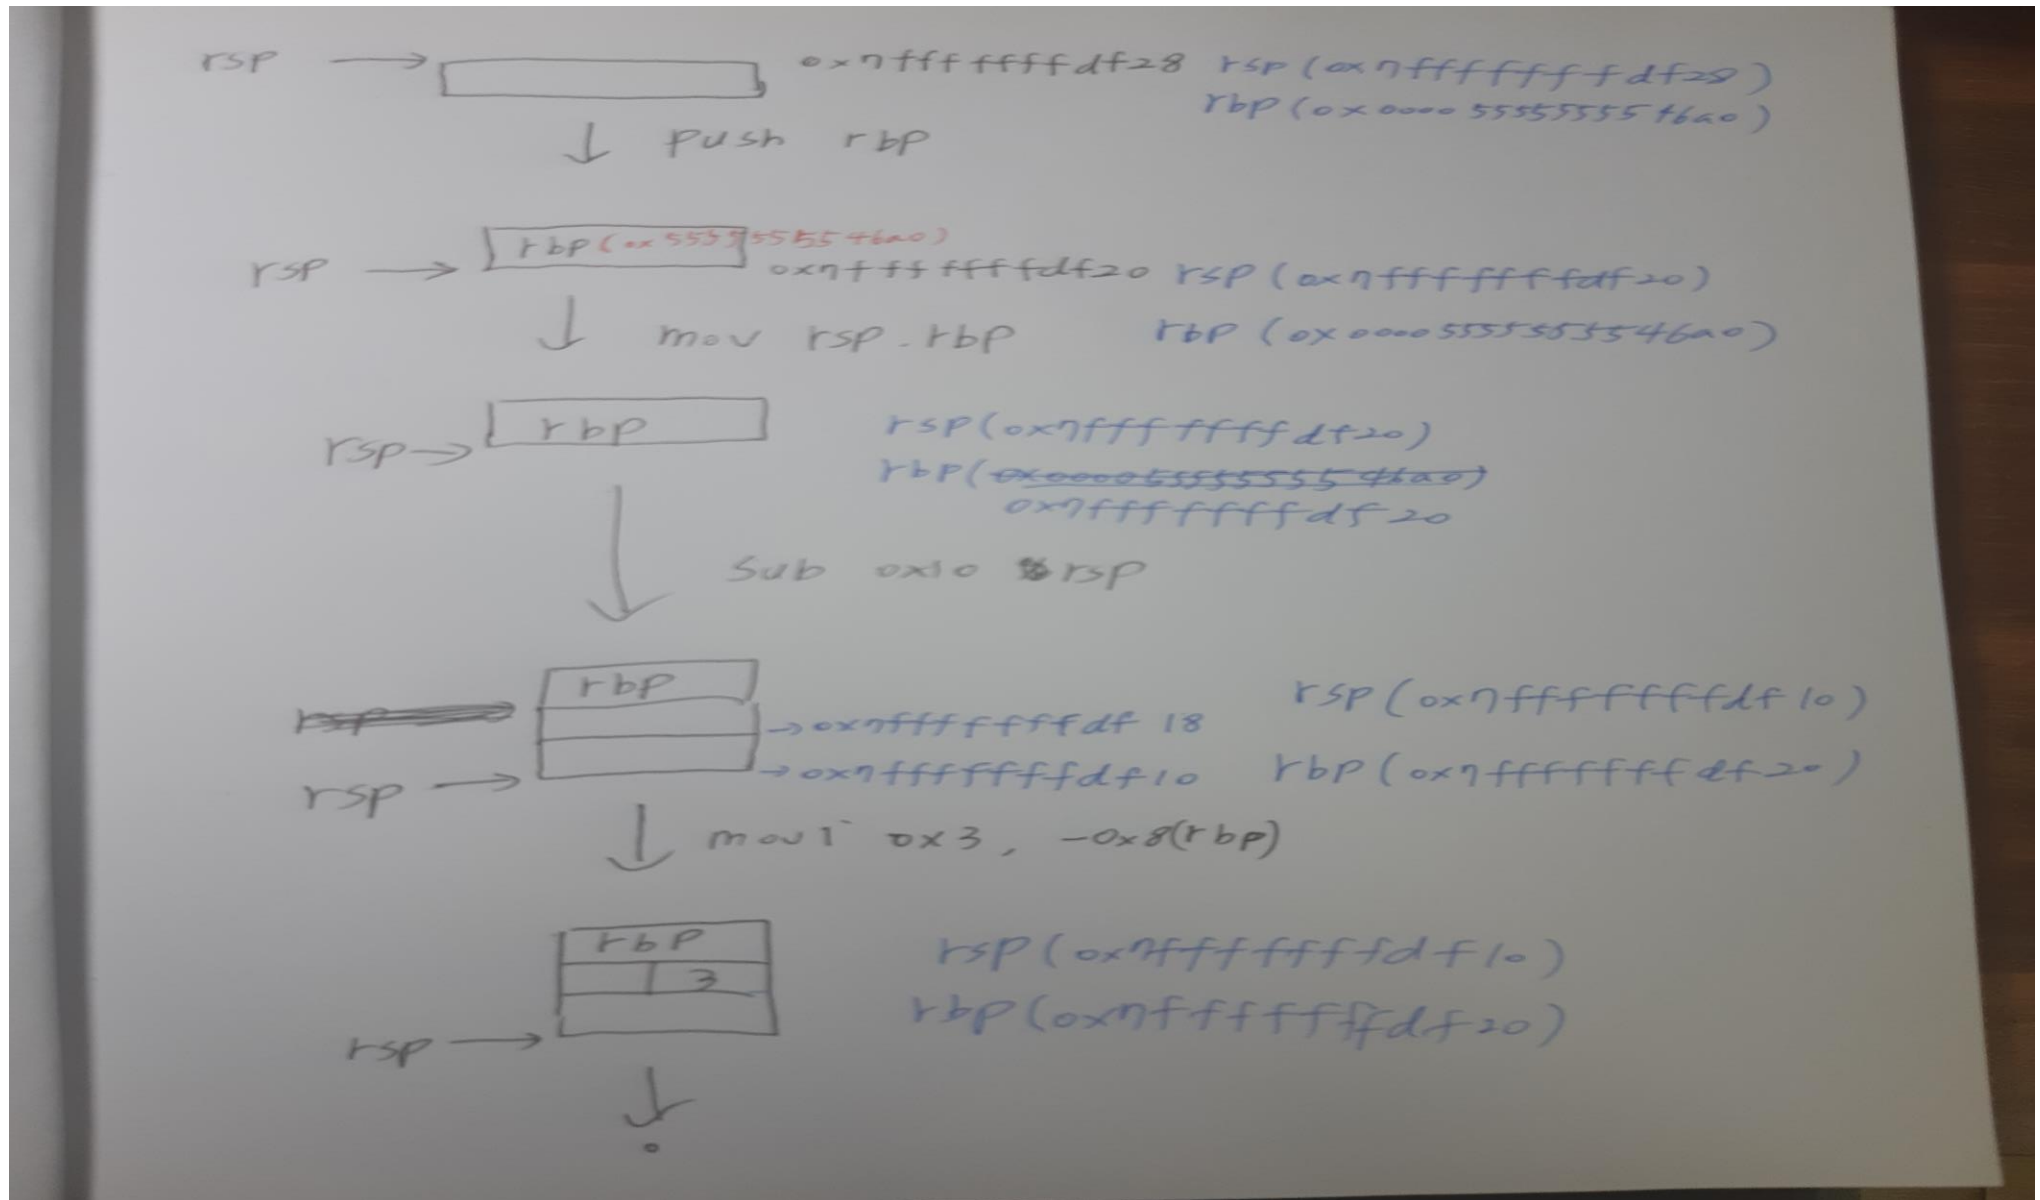 rsp → 0x7fffffffdf28 rsp (0x7fffffffdf28)
rbp (0x00005555555546a0)
↓ push rbp
rbp (0x5555555546a0)
rsp → 0x7fffffffdf20 rsp (0x7fffffffdf20)
↓ mov rsp. rbp rbp (0x00005555555546a0)
rbp rsp (0x7fffffffdf20)
rsp → rbp (0x00005555555546a0)
0x7fffffffdf20
sub 0x10 rsp
rbp rsp (0x7fffffffdf10)
rsp → 0x7fffffffdf18
rsp → → 0x7fffffffdf10 rbp (0x7fffffffdf20)
↓ movl 0x3, -0x8(rbp)
rbp rsp (0x7fffffffdf10)
3
rsp → rbp (0x7fffffffdf20)